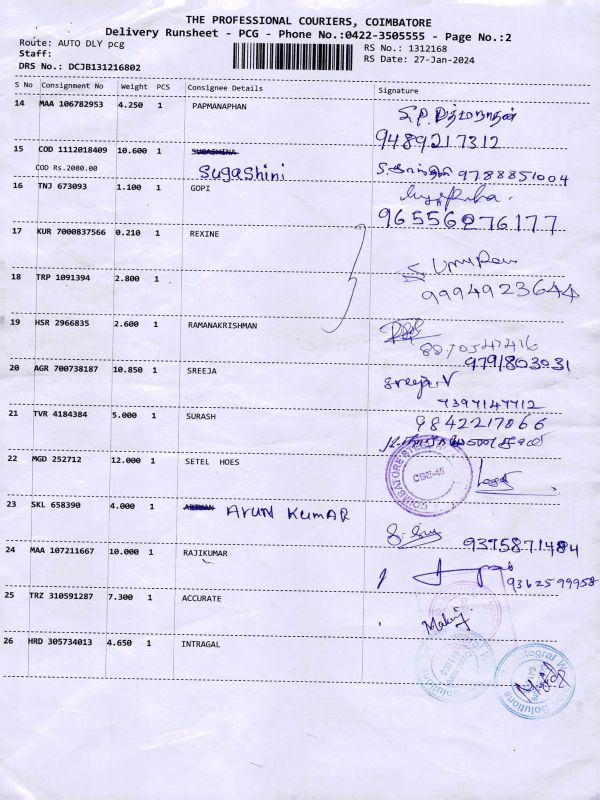 THE PROFESSIONAL COURIERS, COIMBATORE
Delivery Runsheet - PCG - Phone No.:0422-3505555 - Page No.:2
Route: AUTO DLY pcg
RS No.: 1312168
Staff:
RS Date: 27-Jan-2024
DRS No.: DCJB131216802
S No Consignment No Weight PCS Consignee Details Signature
14 MAA 106782953 4.250 1 PAPMANAPHAN
9489217312
15 COD 1112018409 10.600 1 SUGASHINA
COD Rs.2080.00 Sugashini 9788851004
16 TNJ 673093 1.100 1 GOPI
96556276177
17 KUR 7000837566 0.210 1 REXINE
18 TRP 1091394 2.800 1
9994923644
19 HSR 2966835 2.600 1 RAMANAKRISHMAN
9791803031
20 AGR 700738187 10.850 1 SREEJA Sreeja.V
7397147712
21 TVR 4184384 5.000 1 SURASH 9842217066
22 MGD 252712 12.000 1 SETEL HOES
CBE-45
23 SKL 658390 4.000 1 ARUN KUMAR
9375871484
24 MAA 107211667 10.000 1 RAJIKUMAR
9362599958
25 TRZ 310591287 7.300 1 ACCURATE
26 HRD 305734013 4.650 1 INTRAGAL